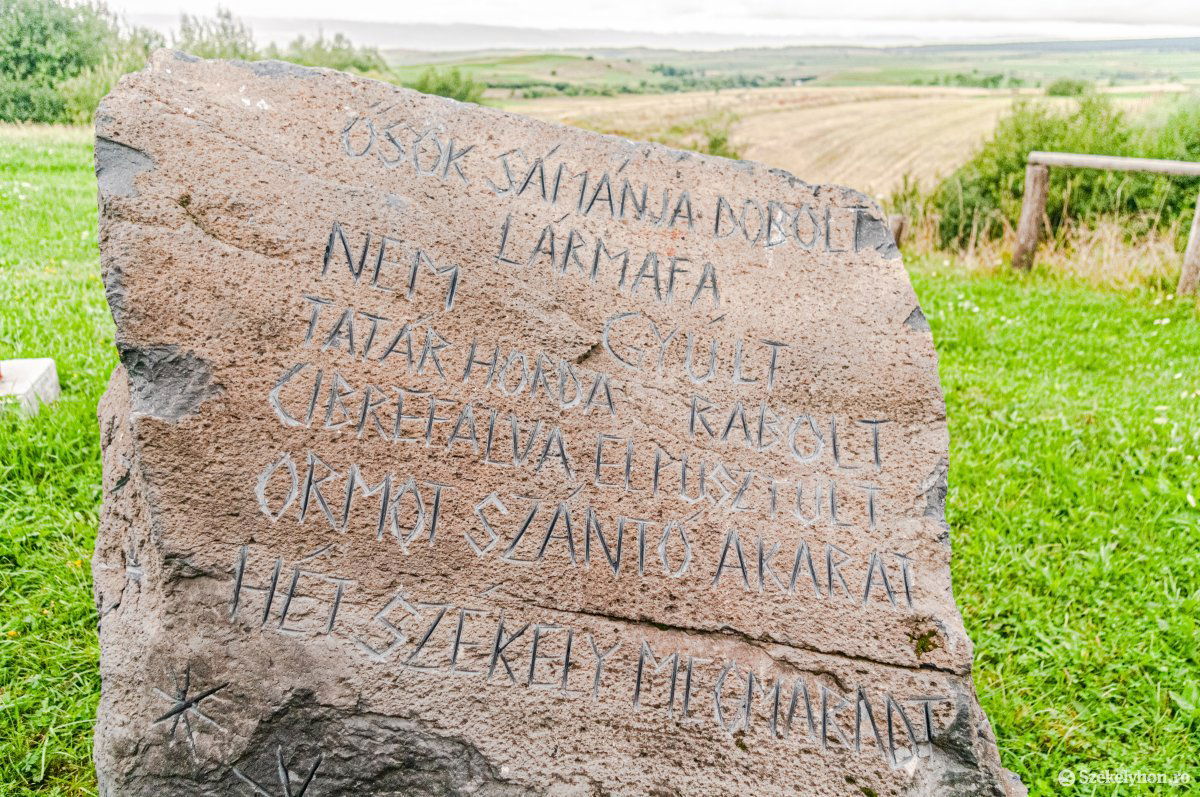 ŐSÖK SÁMÁNJA DOBOLT
LÁRMAFA
NEM GYÚLT
TATÁR HORDA RABOLT
CIBREFALVA ELPUSZTULT
ORMOT SZÁNTÓ AKARAT
HÉT SZÉKELY MEGMARADT
Székelyhon.ro